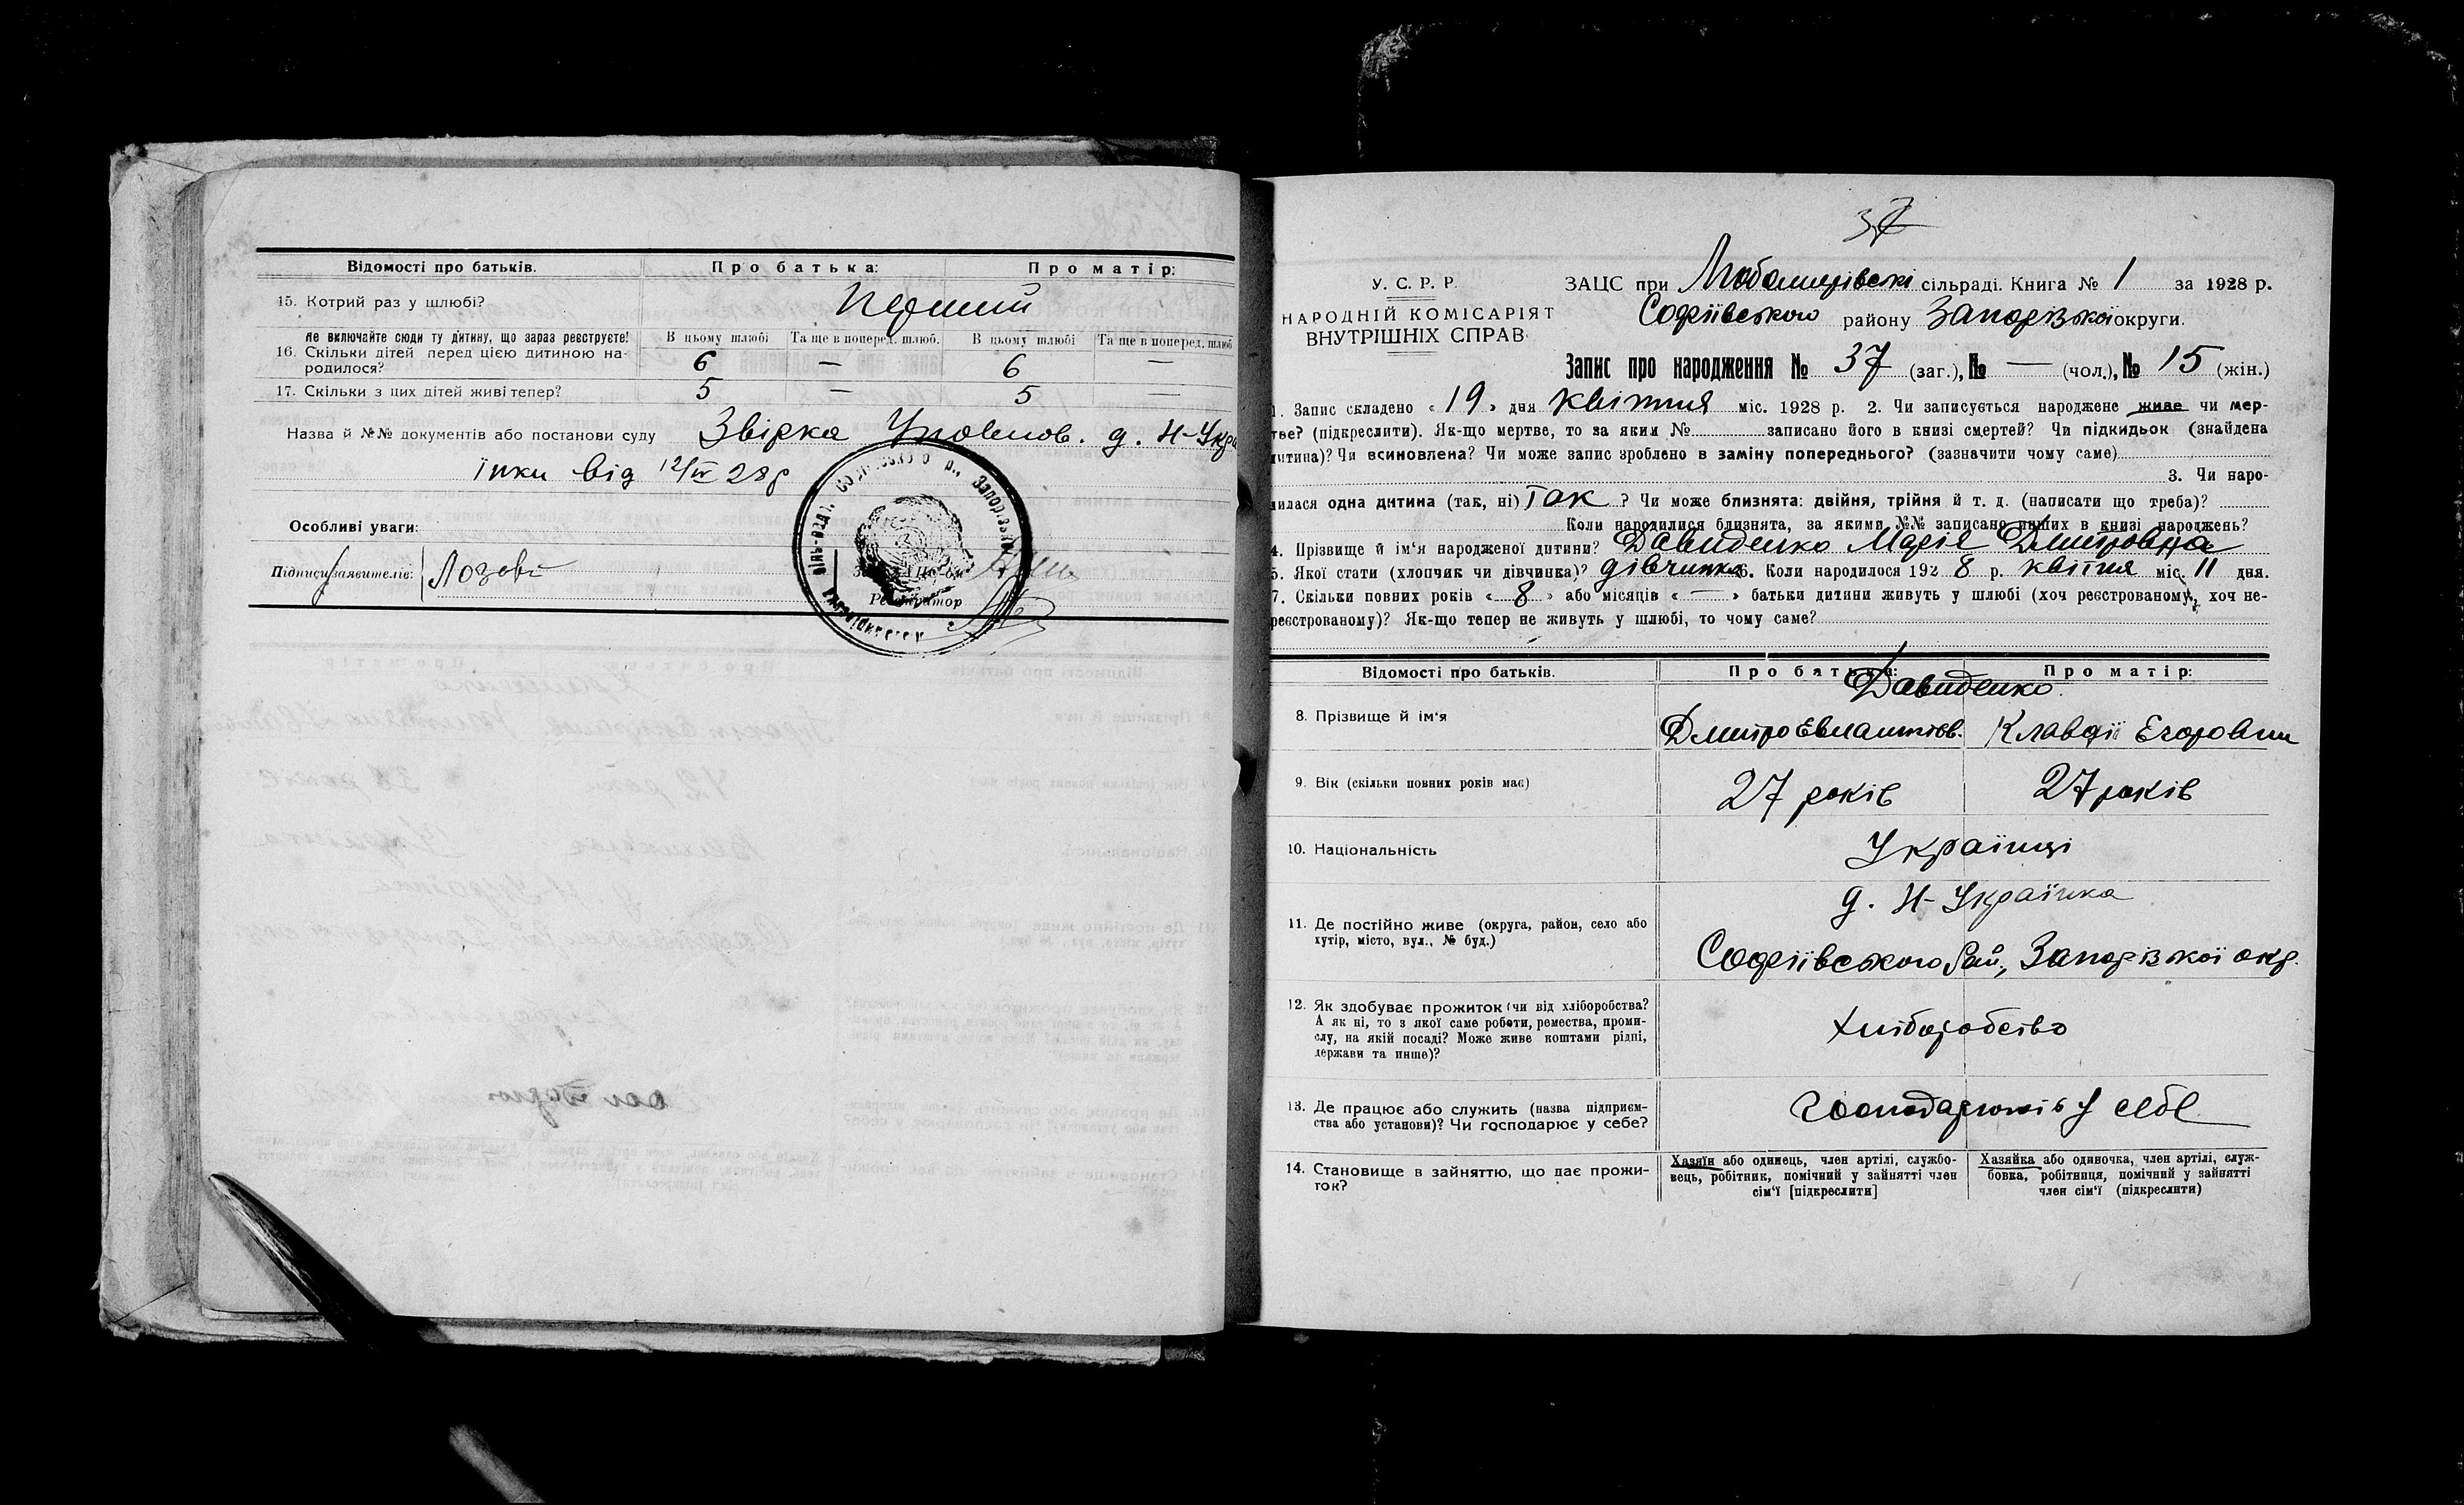 Відомості про батьків. Про батька: Про матір:
15. Котрий раз у шлюбі? Перший
Не включайте сюди ту дитину, що зараз реєструєте! В цьому шлюбі Та ще в поперед. шлюб. В цьому шлюбі Та ще в поперед. шлюб
16. Скільки дітей перед цією дитиною на-
родилося? 6 — 6 —
17. Скільки з цих дітей живі тепер? 5 — 5 —
Назва й №№ документів або постанови суду Звірка Уповнов. д. Н-Укра
їнки від 12/IV 28 р
Особливі уваги:
Підписи заявителів: Лозові
Реєстратор
37
У. С. Р. Р.
НАРОДНІЙ КОМІСАРІЯТ
ВНУТРІШНІХ СПРАВ
ЗАЦС при Любомирівскі сільраді. Книга № 1 за 1928 р.
Софіївського району Запорізької округи.
Запис про народження № 37 (заг.), № — (чол.), № 15 (жін.)
1. Запис складено « 19 » дня квітня міс. 1928 р. 2. Чи записується народжене живе чи мер-
тве? (підкреслити). Як-що мертве, то за яким № записано його в книзі смертей? Чи підкидьок (знайдена
дитина)? Чи всиновлена? Чи може запис зроблено в заміну попереднього? (зазначити чому саме)
3. Чи наро-
дилася одна дитина (так, ні) Так ? Чи може близнята: двійня, трійня й т. д. (написати що треба)?
Коли народилися близнята, за якими №№ записано инших в книзі народжень?
4. Прізвище й ім'я народженої дитини? Давиденко Марія Дмитровна
5. Якої стати (хлопчик чи дівчинка)? дівчинка 6. Коли народилося 192 8 р. квітня міс. 11 дня.
7. Скільки повних років « 8 » або місяців « — » батьки дитини живуть у шлюбі (хоч реєстрованому, хоч не-
реєстрованому)? Як-що тепер не живуть у шлюбі, то чому саме?
Відомості про батьків. Про батька: Про матір:
Давиденко
8. Прізвище й ім'я Дмитро Евлампієв. Клавдії Егоровни
9. Вік (скільки повних років має) 27 років 27 років
10. Національність Українці
д. Н-Українка
11. Де постійно живе (округа, район, село або
хутір, місто, вул., № буд.) Софіївського Рай., Запорізької окр.
12. Як здобуває прожиток (чи від хліборобства?
А як ні, то з якої саме роботи, ремества, проми-
слу, на якій посаді? Може живе коштами рідні,
держави та инше)? Хліборобство
13. Де працює або служить (назва підприєм-
ства або установи)? Чи господарює у себе? Господарюють у себе
14. Становище в зайняттю, що дає прожи-
ток?
Хазяїн або одинець, член артілі, службо-
вець, робітник, помічний у зайнятті член
сім'ї [підкреслити]
Хазяйка або одиночка, член артілі, служ-
бовка, робітниця, помічний у зайнятті
член сім'ї (підкреслити)